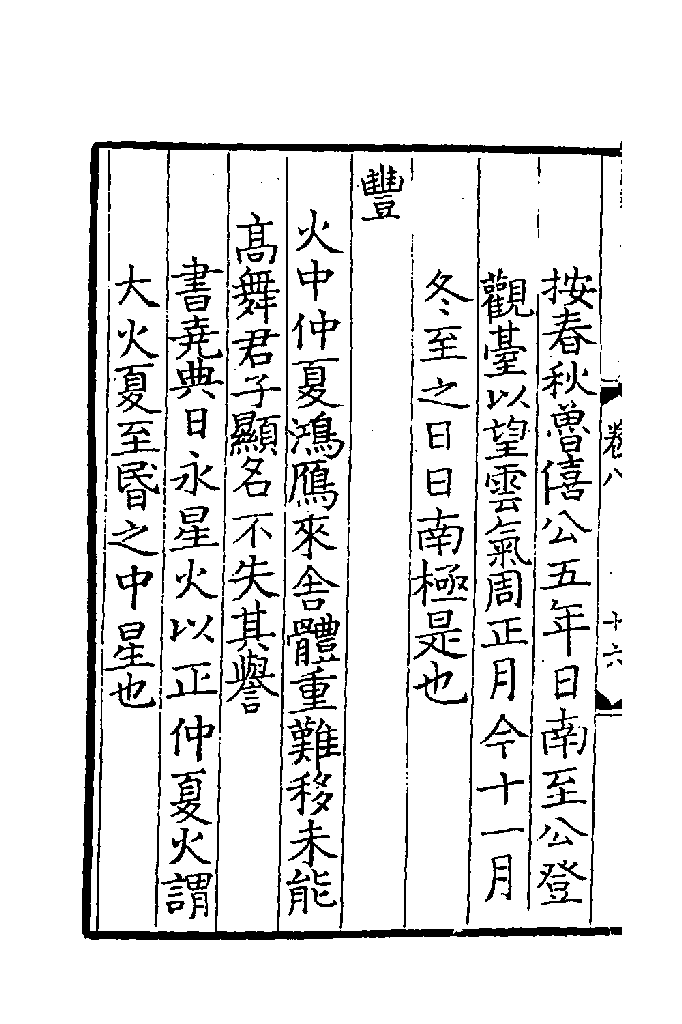 卷八
十六
按春秋魯僖公五年日南至公登
觀臺以望雲氣周正月今十一月
冬至之日日南極是也
豐
火中仲夏鴻鴈來舍體重難移未能
髙舞君子顯名不失其譽
書堯典日永星火以正仲夏火謂
大火夏至昏之中星也